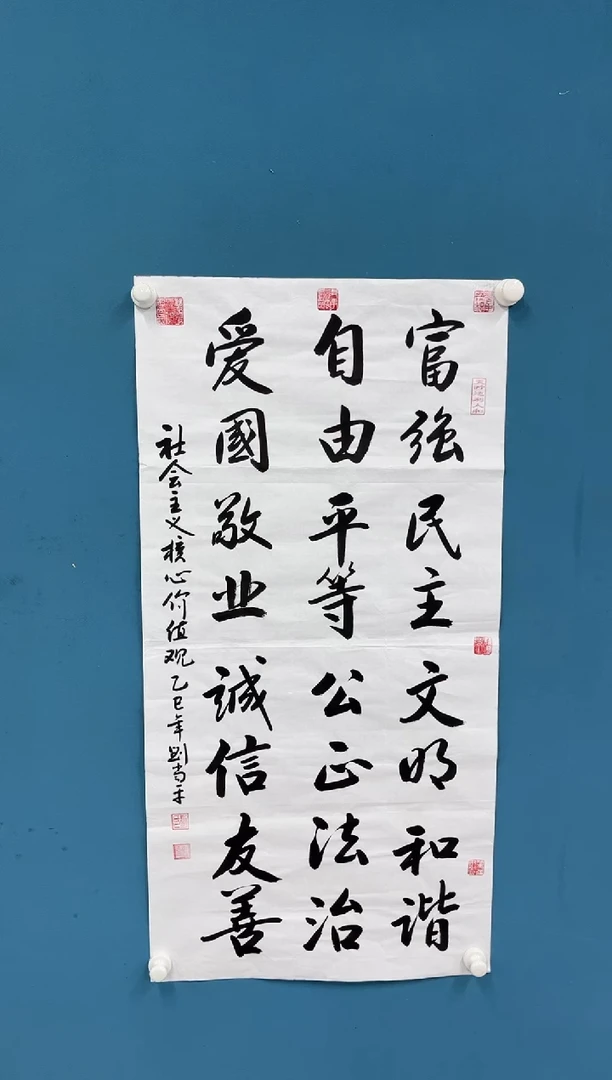 富強民主文明和谐
自由平等公正法治
爱國敬业誠信友善
社会主义核心价值观乙巳年